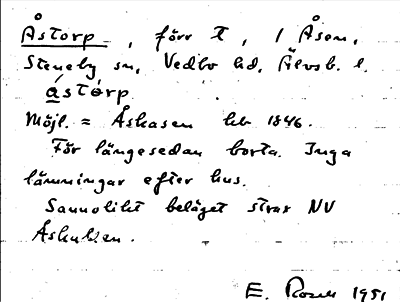 Åstorp, förr t, / Åsen,
Steneby sn, Vedbo hd, Älvsb. l.
åstórp
Möjl. = Åskasen hb 1846.
För längesedan borta. Inga
lämningar efter hus.
Sannolikt beläget strax NV
Åskullen.
E. Rosell 1951